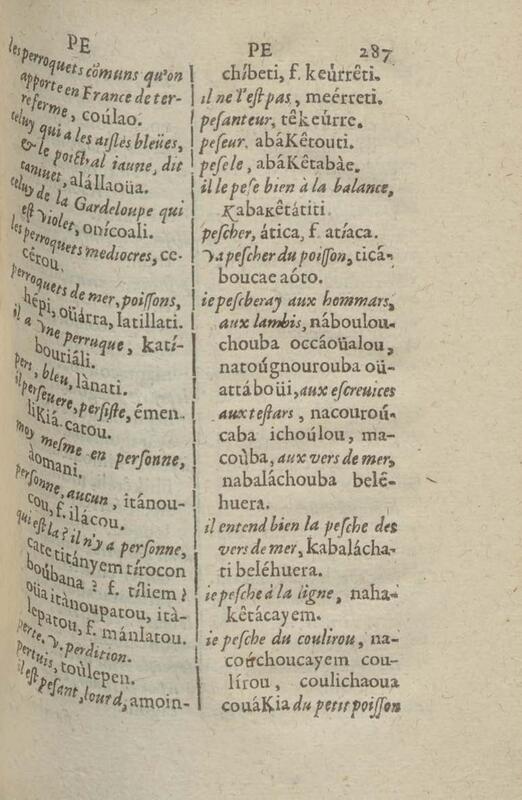 PE
les perroquets cõmuns qu'on
apporte en France de ter-
re ferme, coúlao.
celuy qui a les aisles bleües,
& le poictral iaune, dit
caniuet, alállaoüa.
celuy de la Gardeloupe qui
est violet, onícoali.
les perroquets mediocres, ce-
cérou.
perroquets de mer, poissons,
hépi, oüárra, latillati.
il a vne perruque, katí-
bouriáli.
pers, bleu, lànati.
il perseuere, persiste, émen
liKiá catou.
moy mesme en personne,
àomani.
personne, aucun, itánou-
cou, f. ilácou.
qui est la? il n'y a personne,
cate titányem tírocon
boúbana? f. tíliem?
oüa itànoupatou, ità-
lepatou, f. mánlatou.
perte. v. perdition.
pertuis, toùlepen.
il est pesant, lourd, amoin-
PE 287
chíbeti, f. keúrrêti.
il ne l'est pas, meérreti.
pesanteur, têkeúrre.
peseur. abáKêtouti.
pesele, abáKêtabàe.
il le pese bien à la balance,
Kabaкêtátiti.
pescher, ática, f. atíaca.
va pescher du poisson, ticã-
boucae aóto.
ie pescheray aux hommars,
aux lambis, náboulou-
chouba occáoüalou,
natoúgnourouba oü-
attáboüi, aux escreuices
aux testars, nacouroú-
caba ichoúlou, ma-
coùba, aux vers de mer,
nabaláchouba belê-
huera.
il entend bien la pesche des
vers de mer, kabalácha-
ti beléhuera.
ie pesche à la ligne, naha-
kêtácayem.
ie pesche du coulirou, na-
coúchoucayem cou-
lírou, coulichaoua
couáKia du petit poisson